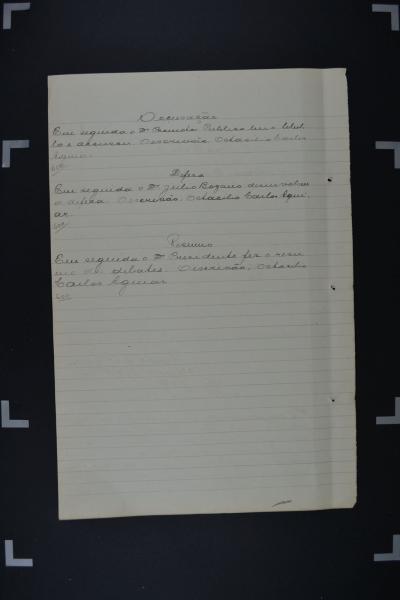 Accusação
Em seguida o Dr. Promotor Publico leu o libel-
lo e accusou. O escrivão, Octacilio Carlos
Aguiar.
Defesa
Em seguida o Dr. Julio Bozano desenvolveu
a defesa. O escrivão, Octacilio Carlos Agui,
ar.
Resumo
Em seguida o Dr. Presidente fez o resu
mo dos debates. O escrivão, Octacilio
Carlos Aguiar